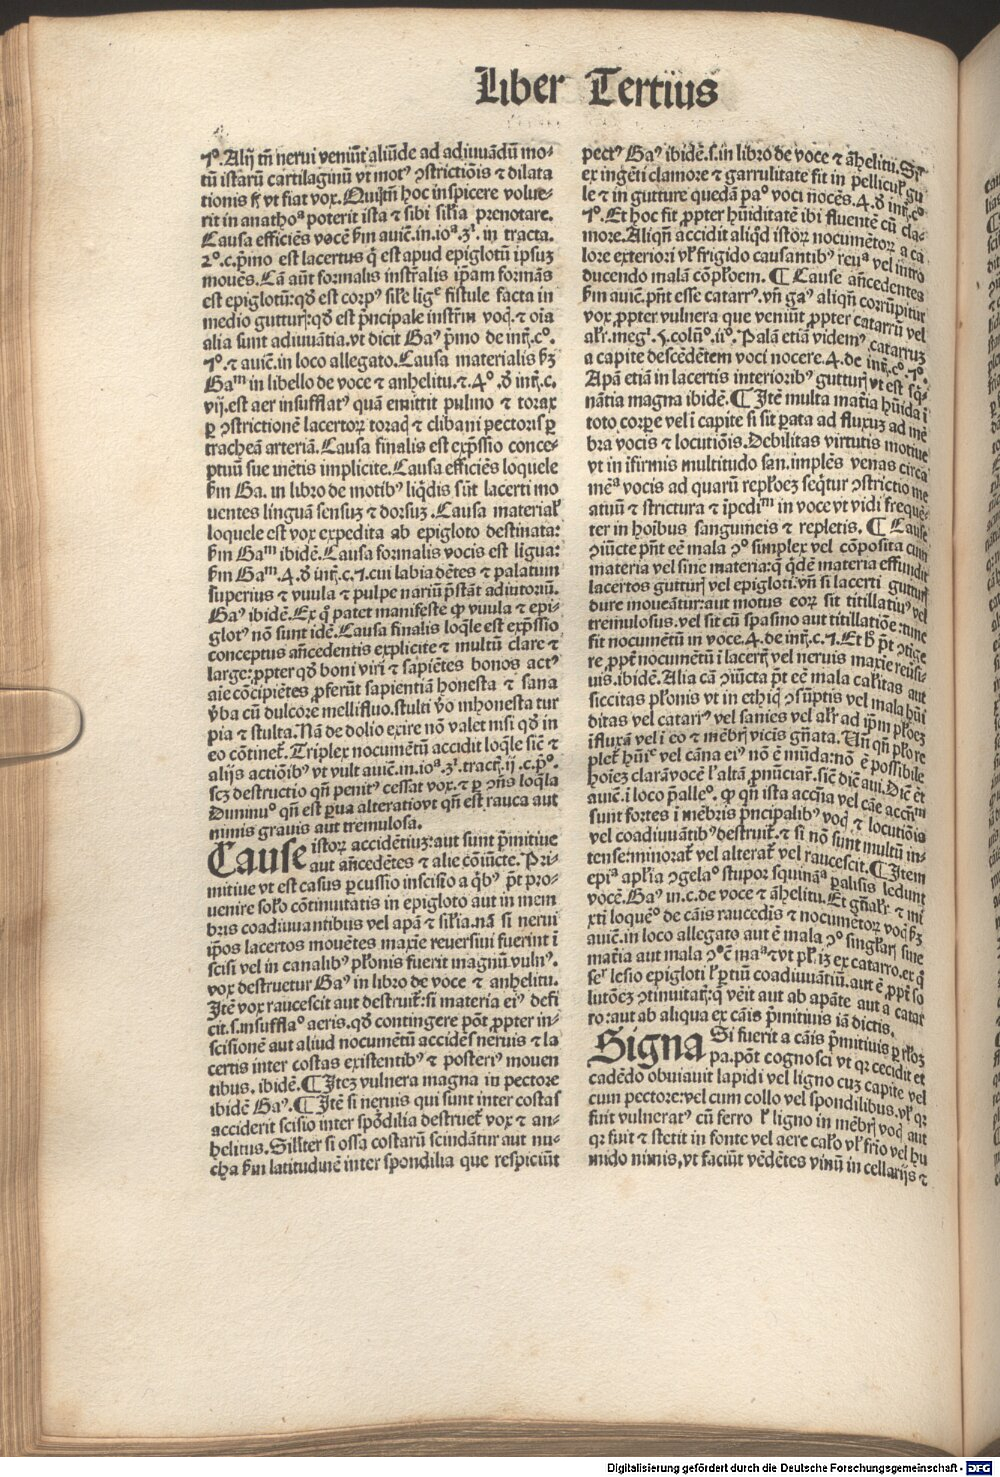 Liber Tertius
1°. Alij tñ nerui veniũt aliũde ad adiuuãdũ mo-
tũ istarũ cartilaginũ vt motꝰ ꝯstrictiõis ⁊ dilata
tionis vt fiat vox. Qui hoc inspicere volue-
rit in anathoᵃ poterit ista ⁊ sibi sil̃ia prenotare.
Causa efficiẽs vocẽ ẜm auicẽ.in.ioᵃ.3ⁱ. in tracta.
2°.c.pͥmo est lacertus q̃ est apud epiglotũ ipsuꝫ
mouẽs. Cã aũt formalis instrͬalis ip̃am formãs
est epiglotũ:qð est corpꝰ sil̃e ligᵉ fistule facta in
medio gutturꝭ:qð est pͥncipale instr̃m vocꝭ.⁊ oĩa
alia sunt adiuuãtia.vt dicit Gaꝰ pͥmo de intꝭ.c°.
1°.⁊ auicẽ.in loco allegato. Causa materialis ẜꝫ
Gaᵐ in libello de voce ⁊ anhelitu.⁊.4°.ð intꝭ.c.
vij.est aer insufflatꝰ quã emittit pulmo ⁊ torax
ꝑ ꝯstrictionẽ lacertoꝝ toracꝭ ⁊ clibani pectoris ꝑ
tracheã arteriã. Causa finalis est exp̃ssio conce-
ptuũ sue mẽtis implicite. Causa efficiẽs loquele
ẜm Ga. in libro de motibꝰ liqͥdis sũt lacerti mo
uentes linguã sensuꝫ ⁊ dorsuꝫ. Causa material̃
loquele est vox expedita ab epigloto destinata:
ẜm Gaᵐ ibidẽ. Causa formalis vocis est lĩgua:
ẜm Gaᵐ.4.ð intꝭ.c.1.cui labia dẽtes ⁊ palatum
superius ⁊ vuula ⁊ pulpe nariũ p̃stãt adiutoriũ.
Gaꝰ ibidẽ. Ex q̊ patet manifeste ꝙ vuula ⁊ epi-
glotꝰ nõ sunt idẽ. Causa finalis loq̃le est exp̃ssio
conceptus añcedentis explicite ⁊ multũ clare ⁊
large:ꝓpter qð boni viri ⁊ sapiẽtes bonos actꝰ
aĩe cõcipiẽtes ꝓferũt sapientiã honesta ⁊ sana
v̾ba cũ dulcore mellifluo.stulti v̾o inhonesta tur
pia ⁊ stulta. Nã de dolio exire nõ valet nisi qð in
eo cõtinet̃. Triplex nocumẽtũ accidit loq̃le sic̃ ⁊
alijs actiõibꝰ vt vult auicẽ.in.ioᵃ.3ⁱ.tractꝭ.ij.c.pͥ°.
scꝫ destructio qñ penitꝰ cessat vox.⁊ ꝑ ꝯñs loq̃la
Dimiuᵒ qñ est ꝑua alteratiovt qñ est rauca aut
nimis grauis aut tremulosa.
Cause istoꝝ accidẽtiuꝫ:aut sunt pͥmitiue
aut añcedẽtes ⁊ alie cõiũcte. Pri-
mitiue vt est casus ꝑcussio inscisio a qͥbꝰ pͥt pro-
uenire sol̃o cõtinuitatis in epigloto aut in mem
bris coadiuuantibus vel apã ⁊ sil̃ia. nã si nerui
ip̃os lacertos mouẽtes maxĩe reuersiui fuerint ĩ
scisi vel in canalibꝰ pl̃onis fuerit magnũ vulnꝰ.
vox destruetur Gaꝰ in libro de voce ⁊ anhelitu.
Itẽ vox raucescit aut destruit̃:si materia eiꝰ defi
cit.s.insufflaᵒ aeris.qð contingere põt ꝓpter in-
scisionẽ aut aliud nocumẽtũ accidẽs neruis ⁊ la
certis inter costas existentibꝰ ⁊ posteriꝰ mouen
tibus. ibidẽ. ¶ Iteꝫ vulnera magna in pectore
ibidẽ Gaꝰ. ¶ Itẽ si neruis qui sunt inter costas
acciderit scisio inter spõdilia destruet̃ vox ⁊ an-
helitus. Sil̃ster si ossa costarũ scindãtur aut nu-
cha ẜm latitudinẽ inter spondilia que respiciũt
pectꝰ Gaꝰ ibidẽ.s.in libro de voce ⁊ ãhelitu.
ex ingẽti clamore ⁊ garrulitate fit in pellicul̃ gu
le ⁊ in gutture quedã paᵒ voci nocẽs.4.ð intꝭ.c°
1°. Et hoc fit ꝓpter hũiditatẽ ibi fluentẽ cũ cla-
more. Aliqñ accidit aliqͥd istoꝝ nocumẽtoꝝ a ca
lore exteriori vl̃ frigido causantibꝰ reuᵃ vel intro
ducendo malã cõpl̃oem. ¶ Cause añcedentes
ẜm auicẽ.pñt esse catarrꝰ. vñ gaꝰ aliqñ corrũpitur
vox ꝓpter vulnera que veniũt ꝓpter catarrũ vel
al̃r.megⁱ.5.colũᵒ.ij°. Palã etiã videmꝰ catarruꝫ
a capite descẽdẽtem voci nocere.4.de intꝭ.c°.1°.
Apã etiã in lacertis interioribꝰ gutturꝭ vt est sqͥ-
nãtia magna ibidẽ. ¶ Itẽ multa mat̃ia hũida ĩ
toto corꝑe vel ĩ capite si sit ꝑata ad fluxuꝫ ad mẽ
bra vocis ⁊ locutiõis. Debilitas virtutis motiue
vt in ĩfirmis multitudo san.implẽs venas circa
mẽᵃ vocis ad quarũ repl̃oeꝫ seq̃tur ꝯstrictio me
atuũ ⁊ strictura ⁊ ĩpediᵐ in voce vt vidi freque-
ter in hoĩbus sanguineis ⁊ repletis. ¶ Cause
ꝯiũcte pñt eẽ mala ꝯ° simplex vel cõposita cum
materia vel sine materia:q̃ qͥdẽ materia effundit̃
lacertos gutturꝭ vel epigloti.vñ si lacerti gutturꝭ
dure moueãtur:aut motus eoꝝ sit titillatiuꝰ vel
tremulosus.vel sit cũ spasmo aut titillatiõe:tunc
fit nocumẽtũ in voce.4.de intꝭ.c.1. Et h̾ pͥt ꝯtige
re ꝓpt̃ nocumẽtũ ĩ lacertꝭ vel neruis maxĩe reuersi-
uis.ibidẽ. Alia cã ꝯiũcta pͥt eẽ mala cal̃itas aut
siccitas pl̃onis vt in ethicꝭ ꝯsũptis vel mala hũi
ditas vel catarrꝰ vel sanies vel al̃r ad ip̃m pl̃oeꝫ
ĩfluxã vel ĩ eo ⁊ mẽbrꝭ vicis gñata. Uñ qñ pl̃ore
plet̃ hũiᵉ vel cãna eiꝰ nõ ẽ mũda:nõ ẽ possibile
hoĩeꝫ clarãvocẽ l̃ altã ꝓnũciar̃.sic̃ dic̃ aui. Dic̃ et
auicẽ.ĩ loco p̾alle°. ꝙ qñ ista accñia vel cãe accñm
sunt fortes ĩ mẽbris pͥncipalibꝰ vocꝭ ⁊ locutiõis
vel coadiuuãtibꝰdestruit̃.⁊ si nõ sunt multũ in-
tense:minorat̃ vel alterat̃ vel raucescit. ¶ Item
epiᵃ apl̃ia ꝯgelaᵒ stupor squinãᵃ ꝑalisis ledunt
vocẽ. Gaꝰ in.c.de voce ⁊ ãhelitu. Et gñal̃r ⁊ mĩ
xti loquẽᵒ de cãis raucedĩs ⁊ nocumẽtoꝝ vocꝭ ẜꝫ
auicẽ.in loco allegato aut ẽ mala ꝯ° singl̃arꝭ sine
mat̃ia aut mala ꝯ°ẽ maᵃ⁊vt pl̃.iꝫ ex catarro.ex q̊
seᷓ lesio epigloti l̃ ꝑtiũ coadiuuãtiũ.aut ẽ ꝓpt̃ so
lutõeꝫ ꝯtinuitatꝭ:q̃ vẽit aut ab apãte aut a catar
ro:aut ab aliqua ex cãis pͥmitiuis iã dictis.
Signa Si fuerit a cãis pͥmitiuis ꝑ rl̃oꝫ
pa.põt cognosci vt qꝛ cecidit et
cadẽdo obuiauit lapidi vel ligno cuꝫ capite vel
cum pectore:vel cum collo vel spondilibus.vl̃ qꝛ
fuit vulneratꝰ cũ ferro l̃ ligno in mẽbrꝭ vocꝭ aut
qꝛ fuit ⁊ stetit in fonte vel aere cal̃o vl̃ frio vel hu
mido nimis,vt faciũt vẽdẽtes vinũ in cellarijs ⁊
Digitalisierung gefördert durch die Deutsche Forschungsgemeinschaft - DFG